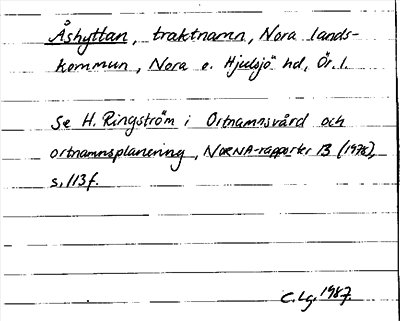 Åshyttan, traktnamn, Nora lands-
kommun, Nora o. Hjulsjö hd, Ör. l.
Se H. Ringström i Ortnamnsvård och
ortnamnsplanering, NORNA-rapporter 13 (1978),
s. 113 f.
C. Lg. 1987.